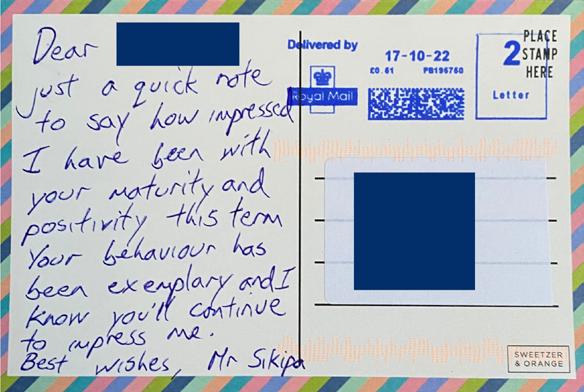 Dear
just a quick note
to say how impressed
I have been with
your maturity and
positivity this term
Your behaviour has
been exemplary and I
know you'll continue
to impress me.
Best wishes, Mr Sikipa
Delivered by
Royal Mail
17-10-22
£0.61 PB196760
2
Letter
PLACE
STAMP
HERE
SWEETZER
& ORANGE